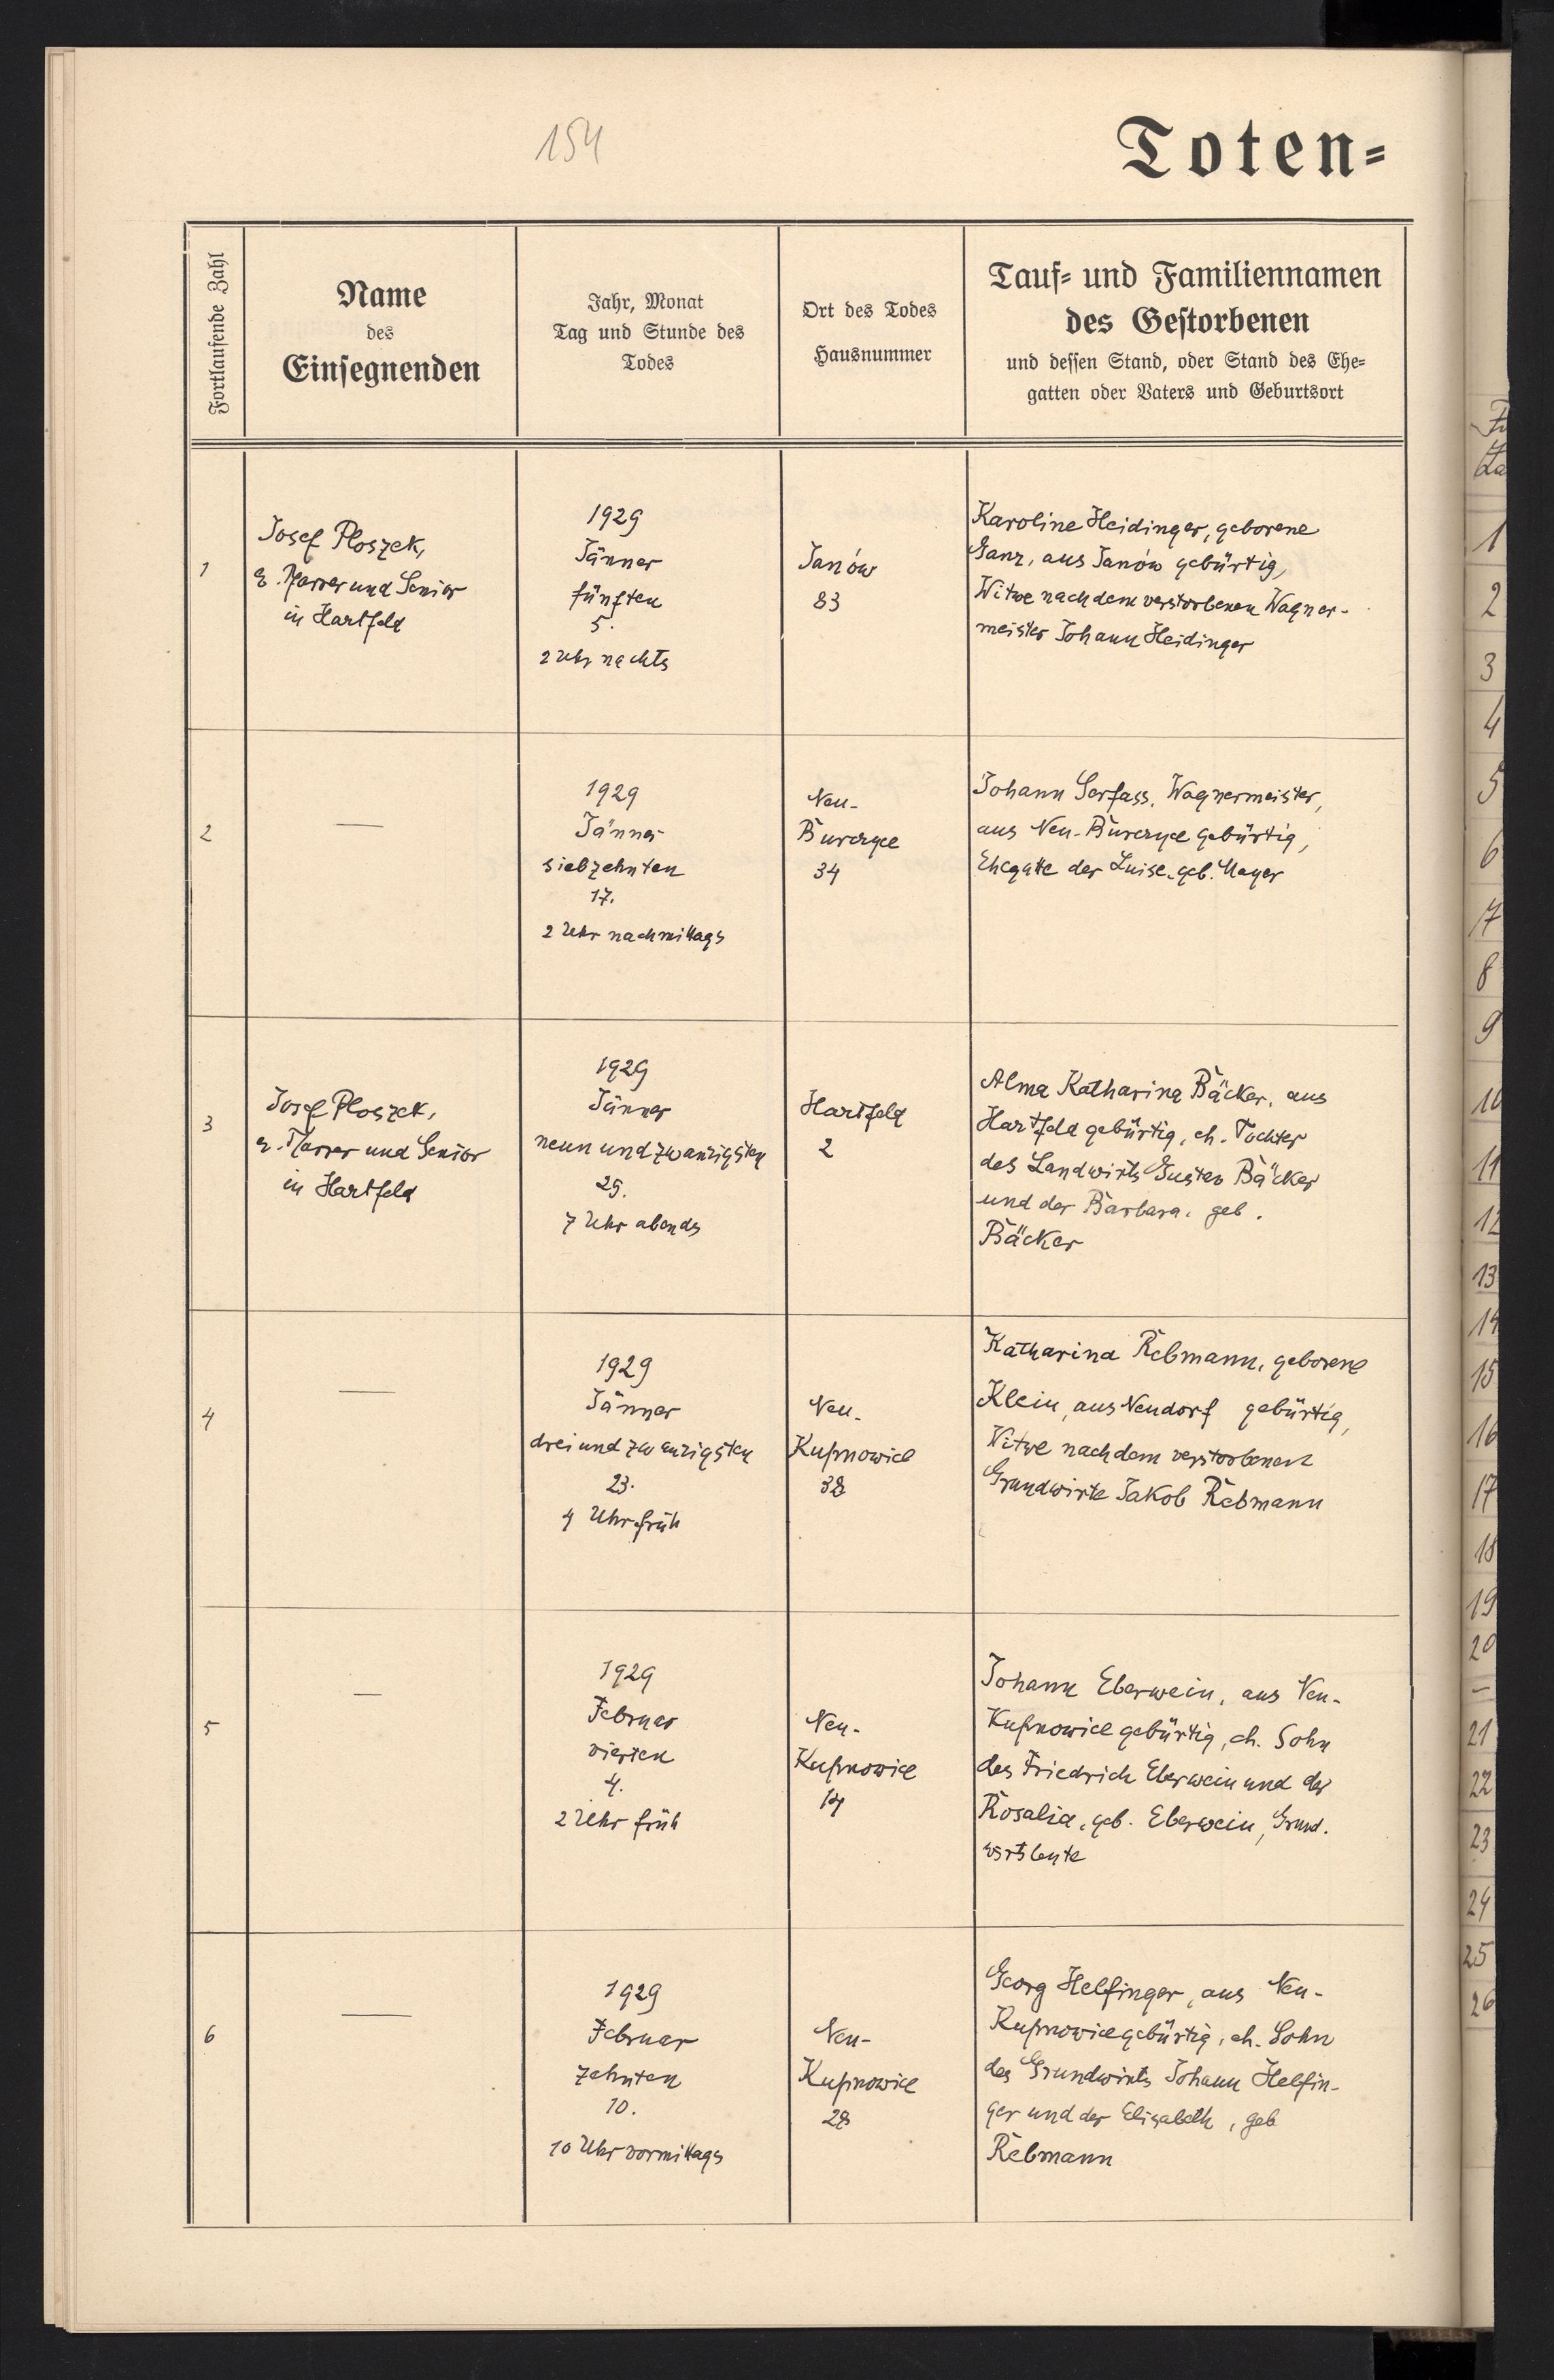 154
Toten=
Fortlaufende Zahl
Name
des
Einsegnenden
Jahr, Monat
Tag und Stunde des
Todes
Ort des Todes
Hausnummer
Tauf= und Familiennamen
des Gestorbenen
und dessen Stand, oder Stand des Ehe=
gatten oder Vaters und Geburtsort
1
Josef Ploszek,
e. Pfarrer und Senior
in Hartfeld
1929
Jänner
fünften
5.
2 Uhr nachts
Janów
83
Karoline Heidinger, geborene
Ganz, aus Janów gebürtig,
Witwe nach dem verstorbenen Wagner-
meister Johann Heidinger
2
—
1929
Jänner
siebzehnten
17.
2 Uhr nachmittags
Neu-
Burczyce
34
Johann Serfass, Wagnermeister,
aus Neu-Burczyce gebürtig,
Ehegatte der Luise, geb. Mayer
3
Josef Ploszek,
e. Pfarrer und Senior
in Hartfeld
1929
Jänner
neun und zwanzigsten
29.
7 Uhr abends
Hartfeld
2
Alma Katharina Bäcker, aus
Hartfeld gebürtig, eh. Tochter
des Landwirts Gustav Bäcker
und der Barbara, geb.
Bäcker
4
—
1929
Jänner
drei und zwanzigsten
23.
4 Uhr früh
Neu-
Kupnowice
38
Katharina Rebmann, geborene
Klein, aus Neudorf gebürtig,
Witwe nach dem verstorbenen
Grundwirte Jakob Rebmann
5
—
1929
Februar
vierten
4.
2 Uhr früh
Neu-
Kupnowice
14
Johann Eberwein, aus Neu-
Kupnowice gebürtig, eh. Sohn
des Friedrich Eberwein und der
Rosalia, geb. Eberwein, Grund-
wirtsleute
6
—
1929
Februar
zehnten
10.
10 Uhr vormittags
Neu-
Kupnowice
28
Georg Helfinger, aus Neu-
Kupnowice gebürtig, eh. Sohn
des Grundwirts Johann Helfin-
ger und der Elisabeth, geb
Rebmann
1
2
3
4
5
6
7
8
9
10
11
12
13
14
15
16
17
18
19
20
—
21
22
23
24
25
26